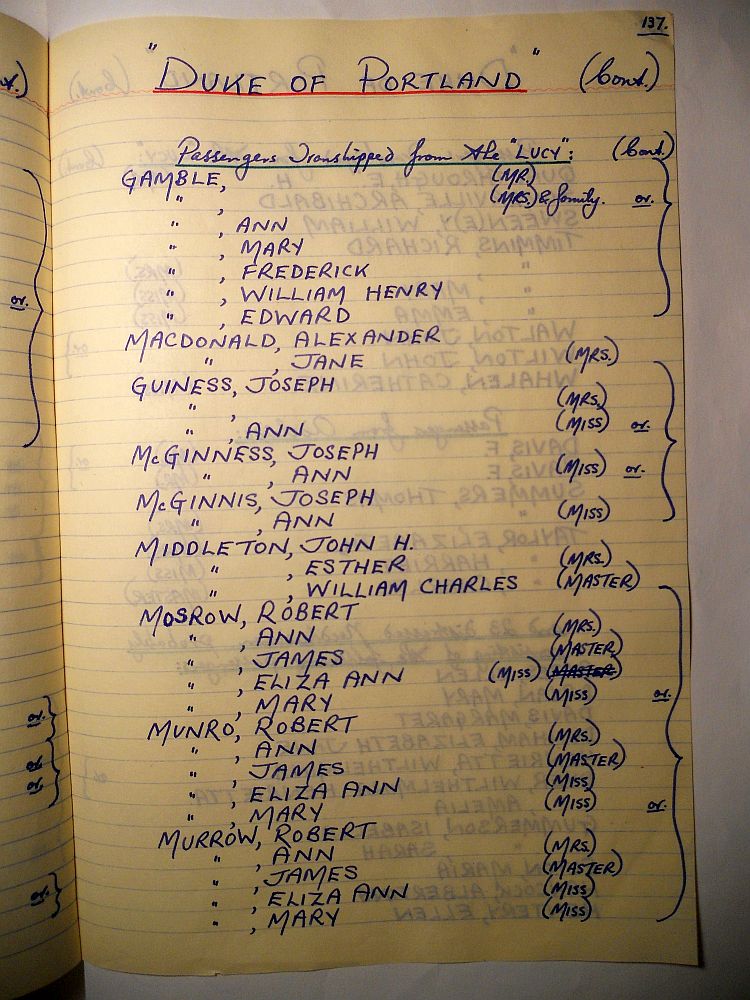 137.
"DUKE OF PORTLAND" (Cont.)
Passengers Transhipped from the "LUCY": (Cont.)
GAMBLE, (MR.)
" , (MRS.) & family. or.
" , ANN
" , MARY
" , FREDERICK
" , WILLIAM HENRY
" , EDWARD
MACDONALD, ALEXANDER
" , JANE (MRS.)
GUINESS, JOSEPH
" , (MRS.)
" , ANN (MISS) or.
McGINNESS, JOSEPH
" , ANN (MISS) or.
McGINNIS, JOSEPH
" , ANN (MISS)
MIDDLETON, JOHN H.
" , ESTHER (MRS.)
" , WILLIAM CHARLES (MASTER)
MOSROW, ROBERT
" , ANN (MRS.)
" , JAMES (MASTER)
" , ELIZA ANN (MISS) (MASTER)
" , MARY (MISS) or.
MUNRO, ROBERT
" , ANN (MRS.)
" , JAMES (MASTER)
" , ELIZA ANN (MISS)
" , MARY (MISS) or.
MURROW, ROBERT
" , ANN (MRS.)
" , JAMES (MASTER)
" , ELIZA ANN (MISS)
" , MARY (MISS)